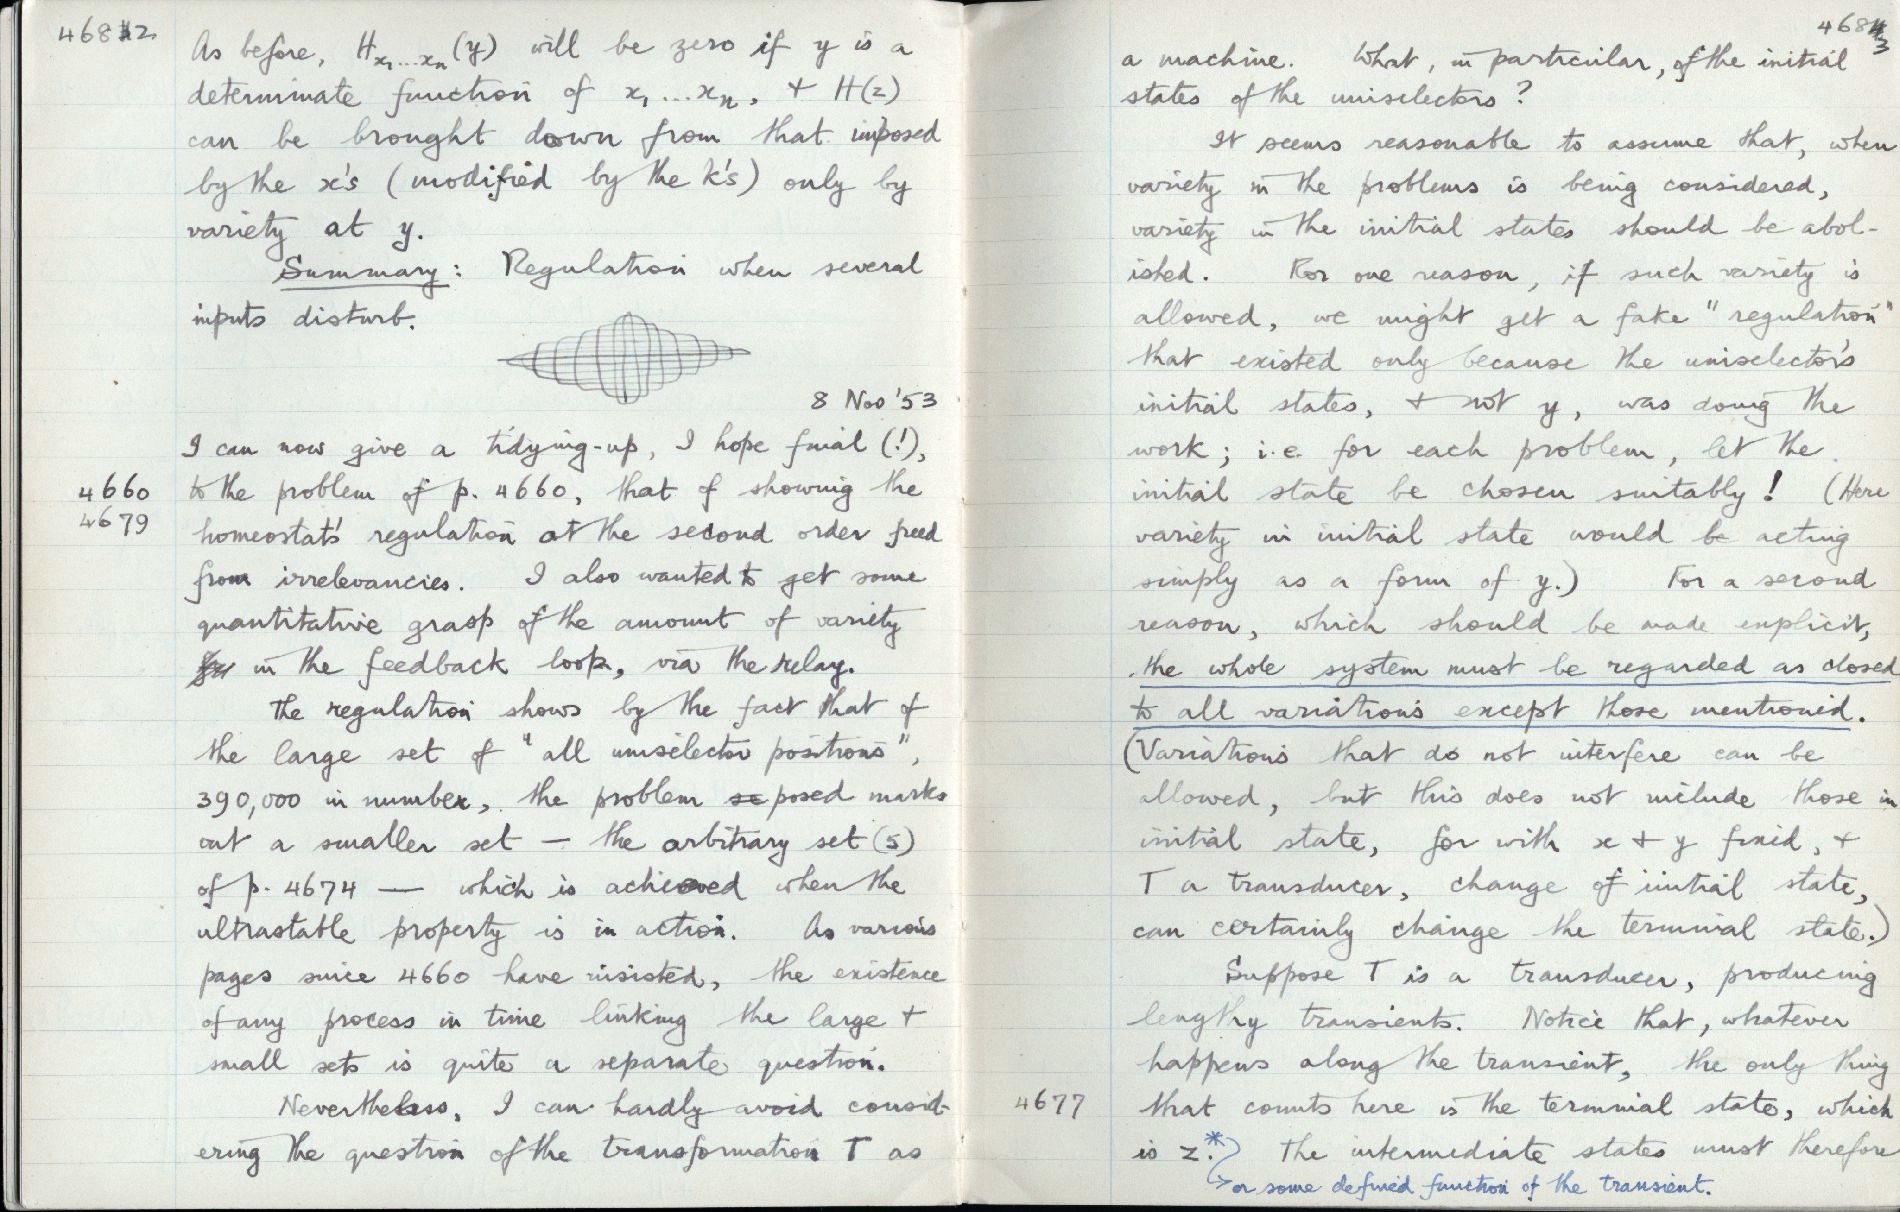 4682
As before, Hx₁...xₙ(y) will be zero if y is a
determinate function of x₁...xₙ, + H(z)
can be brought down from that imposed
by the x's (modified by the k's) only by
variety at y.
Summary: Regulation when several
inputs disturb.
8 Nov '53
I can now give a tidying-up, I hope final (!),
4660
to the problem of p. 4660, that of showing the
4679
homeostat's regulation at the second order freed
from irrelevancies. I also wanted to get some
quantitative grasp of the amount of variety
in the feedback loop, via the relay.
The regulation shows by the fact that of
the large set of "all uniselector positions",
390,000 in number, the problem posed marks
out a smaller set — the arbitrary set (S)
of p. 4674 — which is achieved when the
ultrastable property is in action. As various
pages since 4660 have insisted, the existence
of any process in time linking the large +
small sets is quite a separate question.
Nevertheless, I can hardly avoid consid-
ering the question of the transformation T as
4683
a machine. What, in particular, of the initial
states of the uniselectors?
It seems reasonable to assume that, when
variety in the problems is being considered,
variety in the initial states should be abol-
ished. For one reason, if such variety is
allowed, we might get a fake "regulation"
that existed only because the uniselector's
initial states, + not y, was doing the
work; i.e. for each problem, let the
initial state be chosen suitably! (Here
variety in initial state would be acting
simply as a form of y.) For a second
reason, which should be made explicit,
the whole system must be regarded as closed
to all variations except those mentioned.
(Variations that do not interfere can be
allowed, but this does not include those in
initial state, for with x + y fixed, +
T a transducer, change of initial state,
can certainly change the terminal state.)
Suppose T is a transducer, producing
lengthy transients. Notice that, whatever
happens along the transient, the only thing
4677
that counts here is the terminal state, which
is z.* The intermediate states must therefore
or some defined function of the transient.